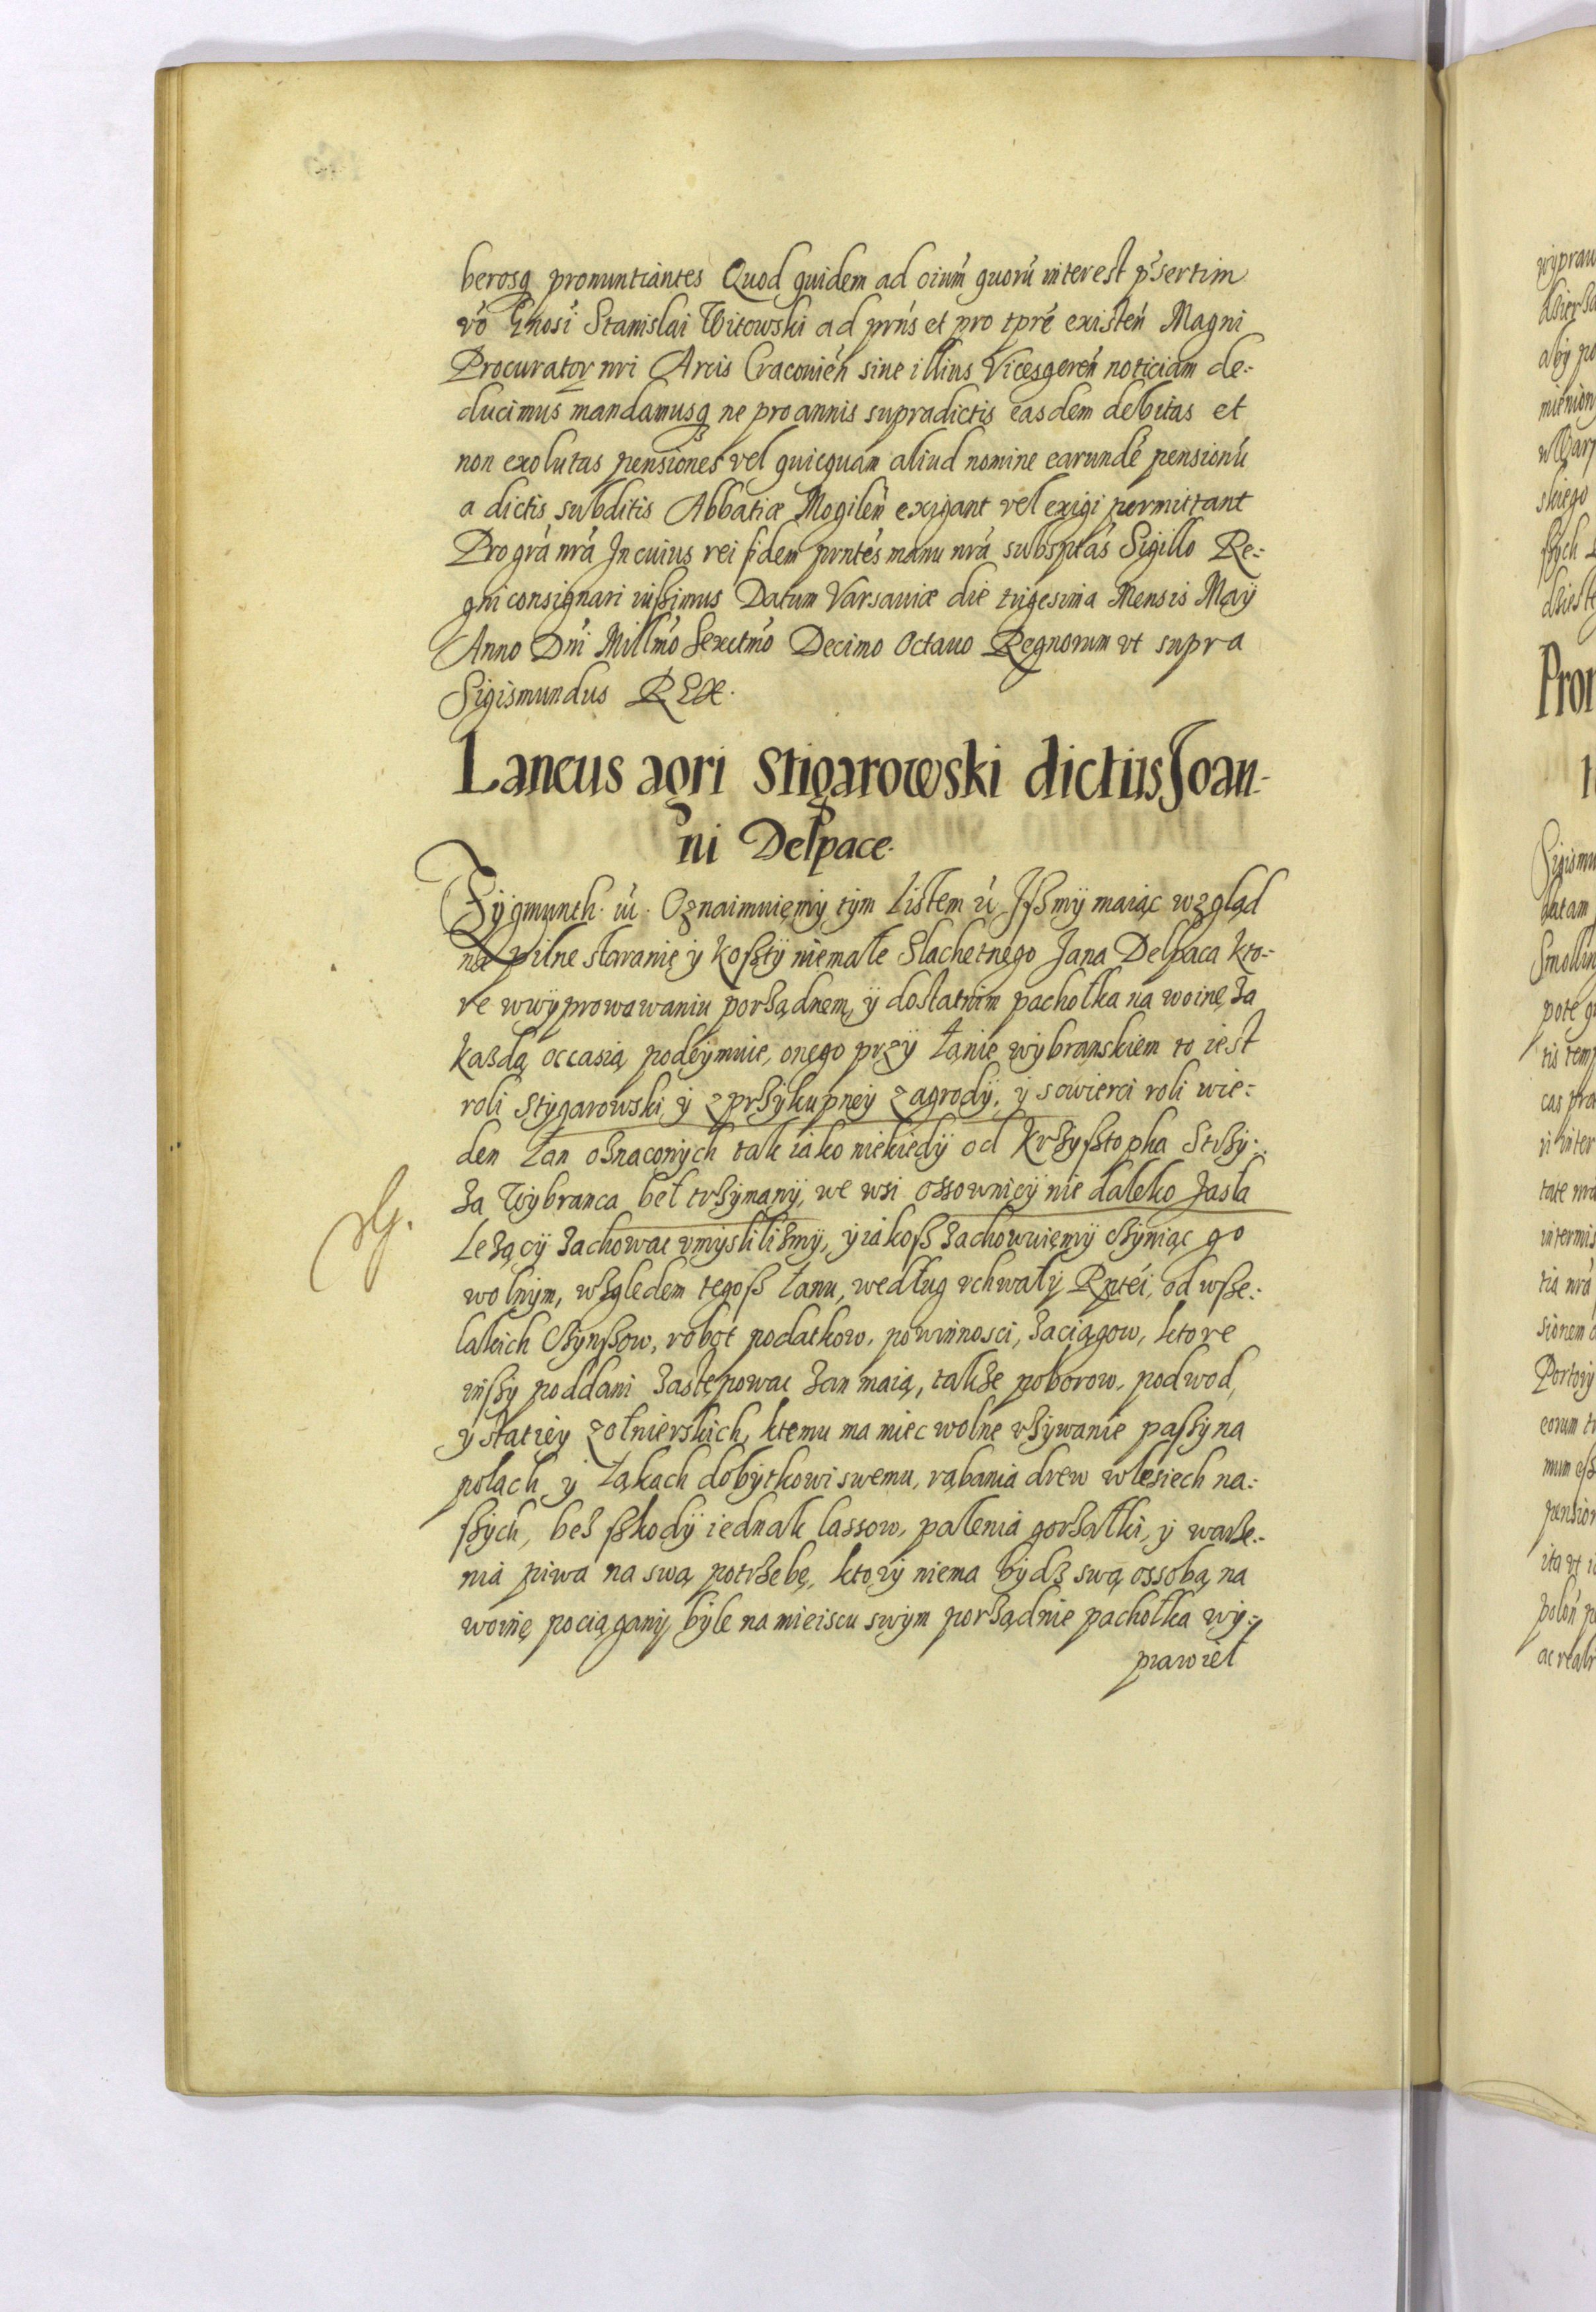 berosq pronuntiantes Quod quidem ad oium̃ quorũ interest p̃sertim
võ Gnosi Stanislai Witowski ad prñs et pro tprẽ existeñ Magni
Procurator nri Arcis Cracovieñ siue illius Vicesgereñ noticiam de=
ducimus mandamusq ne pro annis supradictis easdem debitas et
non exolutas pensiones vel quicquam aliud nomine earundẽ pensionũ
a dictis subditis Abbatiæ Mogileñ exigant vel exigi permittant
Pro grã nrã In cuius rei fidem prntẽs manu nrã subsptãs Sigillo Re=
gni consignari iussimus Datum Varsauiæ die trigesima Mensis Maÿ
Anno Dñi Millmõ Sexctmõ Decimo Octauo Regnorum vt supra
Sigismundus REX.
Lancus agri Stigarowski dictus Joan-
ni Delpace.
Zÿgmunth. iii. Oznaimuięmÿ tÿm listem ũ Jßmÿ maiąc wzgląd
na pilne staranię ÿ koßtÿ niemałe Slachetnego Jana Delpaca kto=
re w wÿprowawaniu porządnem, ÿ dostatnim pachołka na woinę za
każdą occasią podeÿmuie, onego przÿ łanie wÿbranskiem to iest
roli Stÿgarowski ÿ z przÿkupneÿ zagrodÿ, ÿ sowierci roli wie=
den łan oznaconÿch tak iako niekiedÿ od Krzÿßtopha Strzÿ=
za Wÿbranca beł trzÿmanÿ, we wsi Ossownicÿ nie daleko Jasła
Leżącÿ zachowac vmÿslilizmÿ, ÿ iakoß zachowuięmÿ czÿniąc go
wolnÿm, względem tegoß łanu, według vchwałÿ Rptẽi, od wße=
lakich Czÿnßow, robot podatkow, powinnosci, zaciągow, ktore
inßÿ poddani zastępowac zan maią, także poborow, podwod,
ÿ statieÿ zołnierskich, ktemu ma miec wolne vżÿwanie paßÿ na
polach ÿ łąkach dobÿtkowi swemu, rąbania drew w lesiech na=
ßÿch, bez ßkodÿ iednak lassow, palenia gorzałki, ÿ warze=
nia piwa na swą potrzebę, ktorÿ niema bÿdz swą ossobą na
woinę pociąganÿ, bÿle na mieiscu swÿm porządnie pachołka wÿ=
prawieł